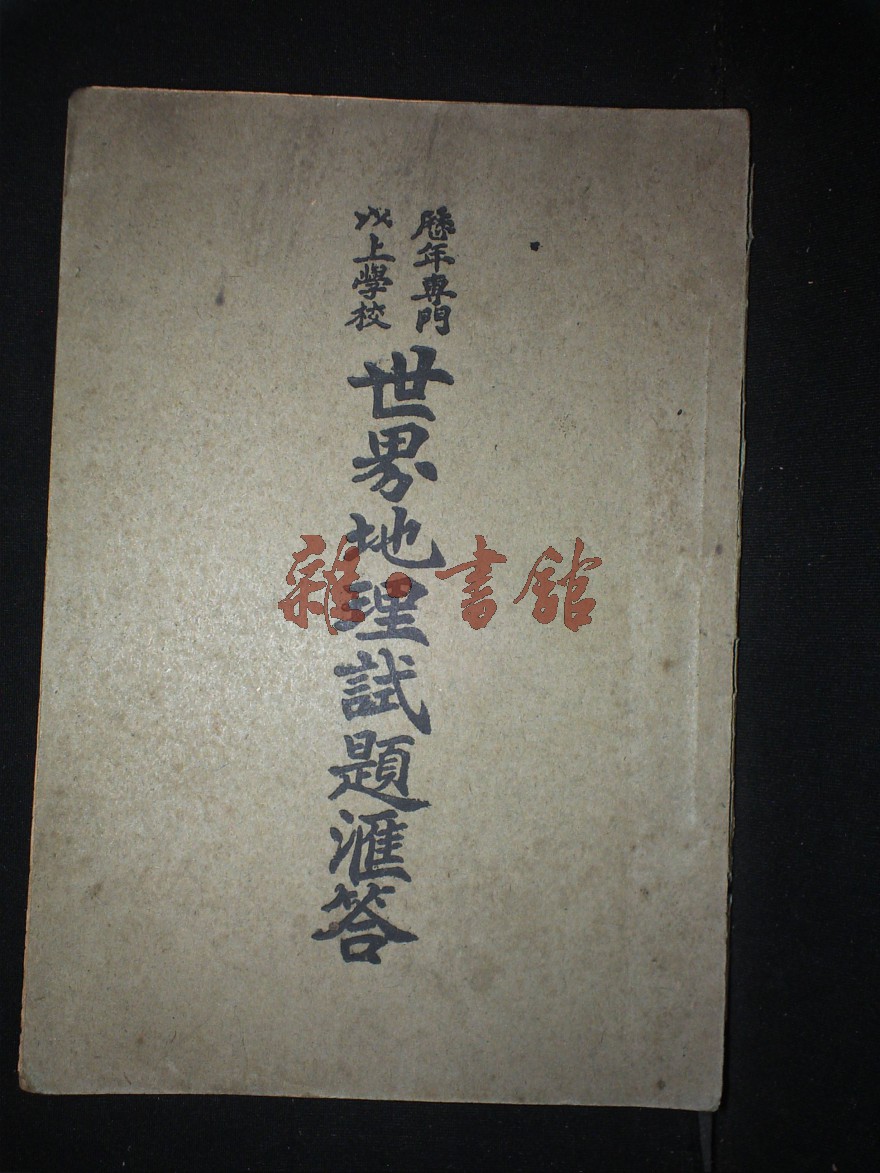 歷年專門
以上學校
世界地理試題滙答
雜·書館